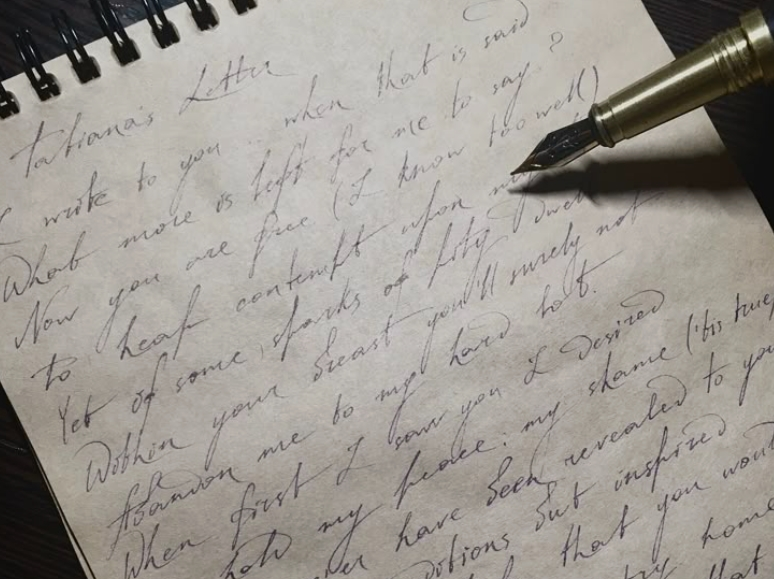 Tatiana's Letter
I write to you... when that is said
What more is left for me to say?
Now you are free (I know too well)
to heap contempt upon
Yet if some sparks of pity dwell
Within your breast you'll surely not
Abandon me to my hard lot.
When first I saw you I desired
hold my peace; my shame ('tis true
have been revealed to you
but inspired
that you would
home
that